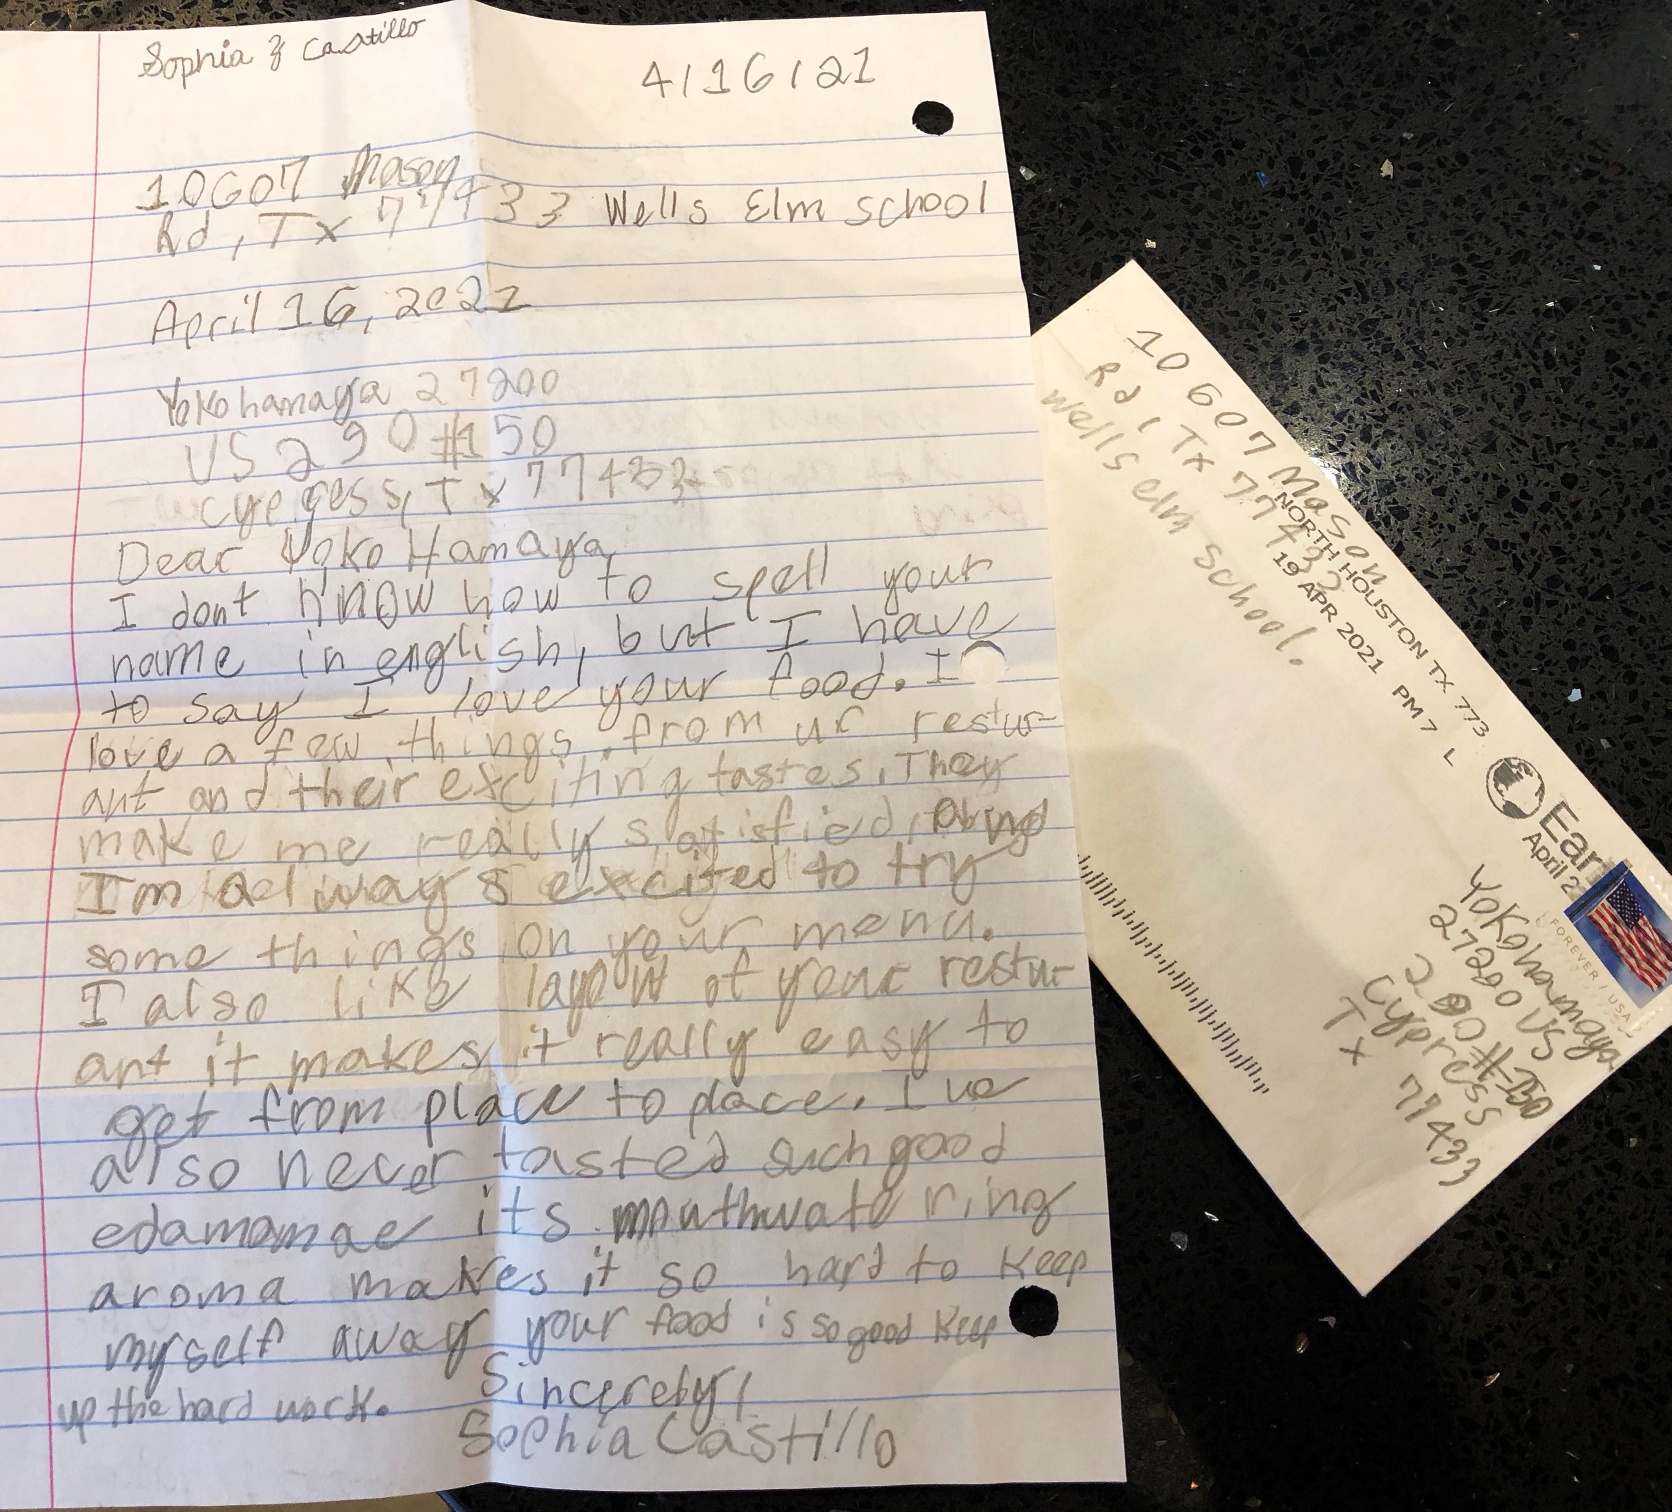 Sophia Castillo
4/16/21
10607 Mason
Rd, Tx 77433 Wells Elm School
April 16, 2021
Yokohamaya 27200
US 290 #150
Cypress, Tx 77433
Dear Yoko Hamaya
I dont know how to spell your
name in english, but I have
to say I love your food. I
love a few things from ur restur-
ant and their exciting tastes. They
make me really satisfied, and
I'm always excited to try
some things on your menu.
I also like layout of your restur-
ant it makes it really easy to
get from place to place. I ve
also never tasted such good
edamamae its mouthwatering
aroma makes it so hard to keep
myself away your food is so good keep
up the hard work.
Sincerely,
Sophia Castillo
10607 Mason
Rd, Tx 77433
Wells elm school.
NORTH HOUSTON TX 773
19 APR 2021 PM 7 L
Eart
April 2
FOREVER / USA
Yokohamaya
27200 US
290 #150
Cypress
Tx 77433